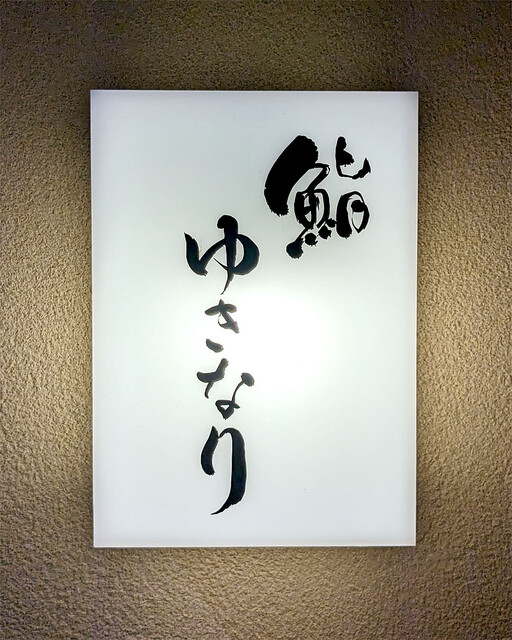 鮨
ゆさなり